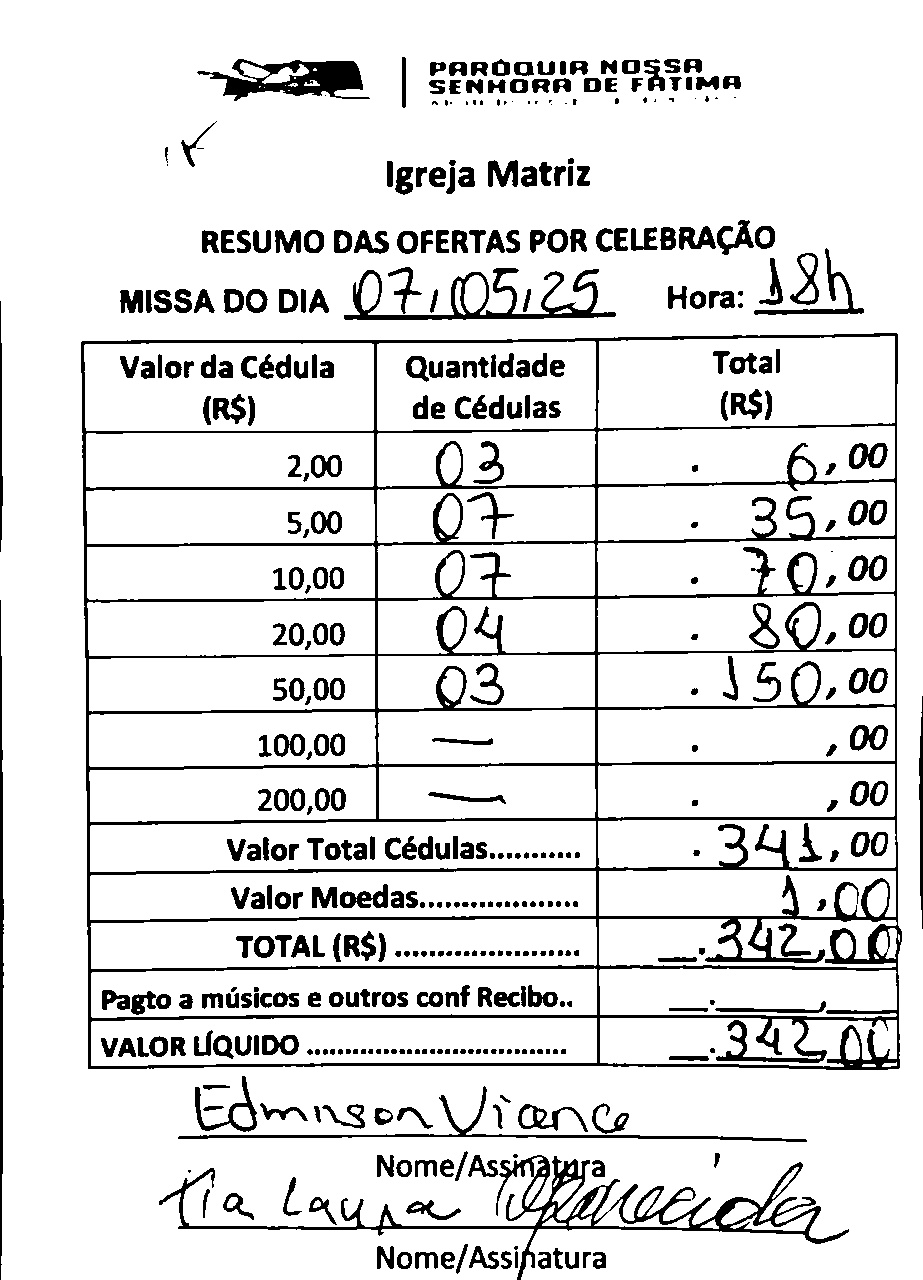 PARÓQUIA NOSSA
SENHORA DE FÁTIMA
Igreja Matriz
RESUMO DAS OFERTAS POR CELEBRAÇÃO
MISSA DO DIA 07/05/25 Hora: 18h
Valor da Cédula (R$) Quantidade de Cédulas Total (R$)
2,00 03 . 6,00
5,00 07 . 35,00
10,00 07 . 70,00
20,00 04 . 80,00
50,00 03 . 150,00
100,00 — . ,00
200,00 — . ,00
Valor Total Cédulas........... . 341,00
Valor Moedas................... 1,00
TOTAL (R$) ...................... .342,00
Pagto a músicos e outros conf Recibo.. __.____,__
VALOR LÍQUIDO ............................... .342,00
Edmilson Vicence
Nome/Assinatura
Aparecida
Nome/Assinatura